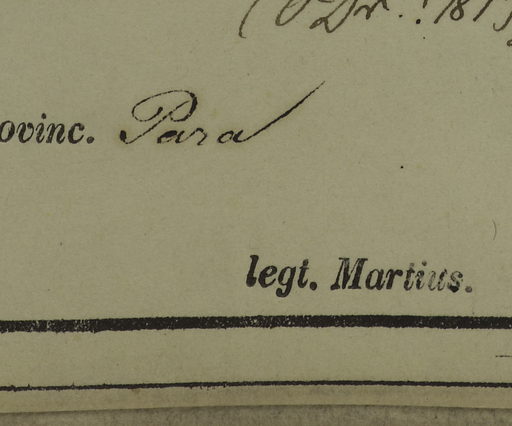 Dr. ! 181
ovinc. Para
legt. Martius.